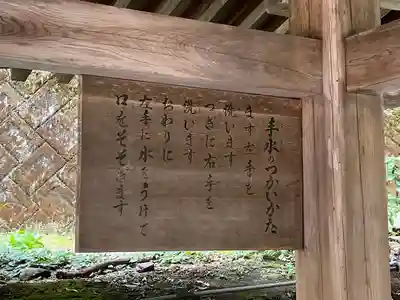 手水のつかいかた
まず左手を
洗います
つぎに右手を
洗います
おわりに
左手に水をうけて
口をそそぎます